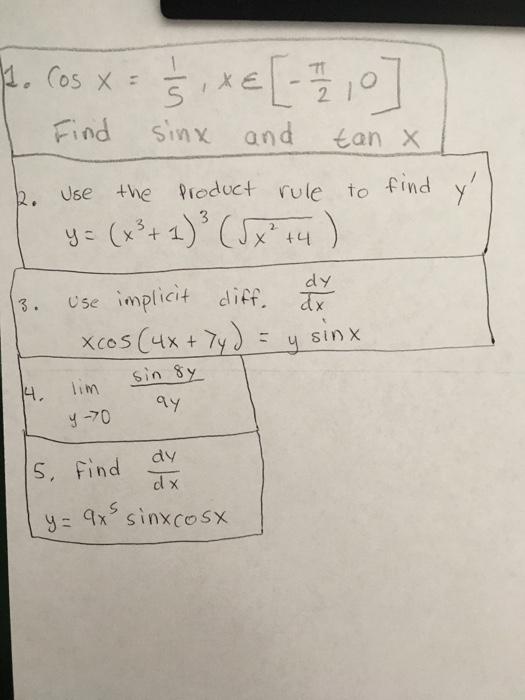 1. Cos x = 1/5, x ∈ [-π/2, 0]
Find sinx and tan x
2. Use the Product rule to find y'
y = (x³ + 1)³ (√x² + 4)
3. Use implicit diff. dy/dx
xcos(4x + 7y) = y sinx
4. lim y→0 sin 8y / 9y
5. Find dy/dx
y = 9x⁵ sinxcosx